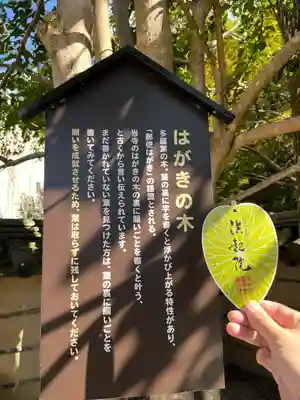 はがきの木
多羅葉の木。葉の裏に字を書くと浮かび上がる特性があり、
「郵便はがき」の語源とされる。
当寺のはがきの木の葉の裏に願いごとを書くと叶う、
と古くから言い伝えられています。
まだ書かれていない葉を見つけた方は、葉の裏に願いごとを
書いてみてください。
願いを成就させるため、葉は取らずに残しておいてください。